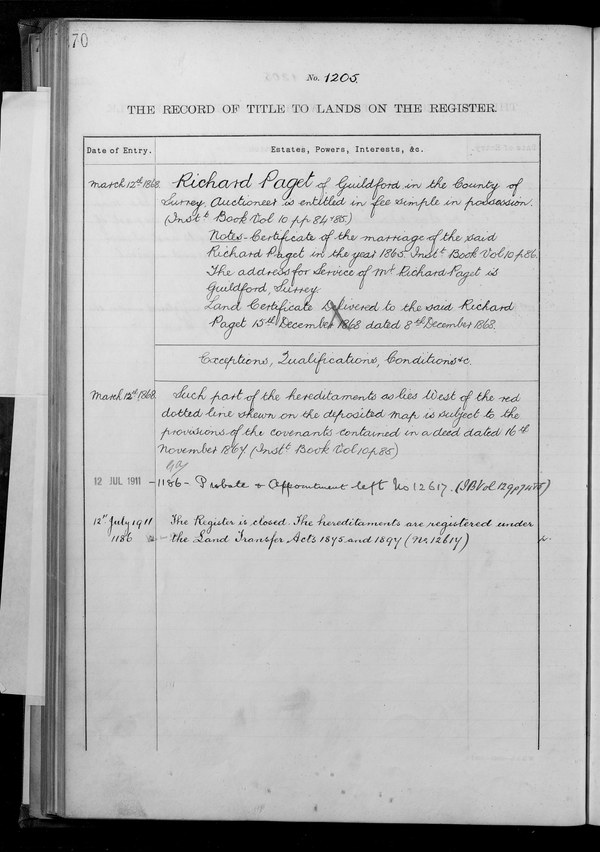 70
No. 1205.
THE RECORD OF TITLE TO LANDS ON THE REGISTER.
Date of Entry. Estates, Powers, Interests, &c.
March 12th 1868. Richard Paget of Guildford in the County of
Surrey, Auctioneer is entitled in fee simple in possession.
(Instt Book Vol 10 pp 84 & 85.)
Notes - Certificate of the marriage of the said
Richard Paget in the year 1865 Instt Book Vol 10 p 86.
The address for Service of Mr Richard Paget is
Guildford, Surrey.
Land Certificate Delivered to the said Richard
Paget 15th December 1868 dated 8th December 1868.
Exceptions, Qualifications, Conditions &c.
March 12th 1868. Such part of the hereditaments as lies West of the red
dotted line shewn on the deposited map is subject to the
provisions of the covenants contained in a deed dated 16th
November 1867 (Instt Book Vol 10 p 85)
12 JUL 1911 - 1186 - Probate & Appointment left No 12617. (IB Vol 129 p
12th July 1911 The Register is closed. The hereditaments are registered under
1186 - the Land Transfer Acts 1875 and 1897 (No. 12617)